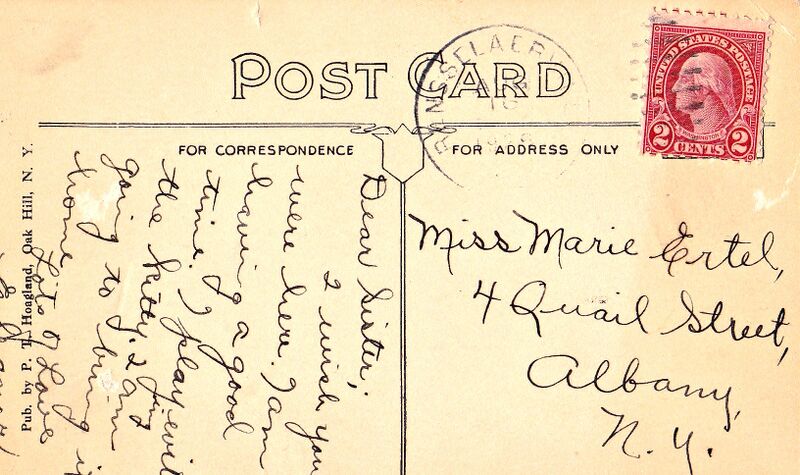 POST CARD
RENSSELAERV
UNITED STATES POSTAGE
WASHINGTON
2 CENTS 2
FOR CORRESPONDENCE
FOR ADDRESS ONLY
Dear Sister,
I wish you
were here. I am
having a good
time. I play
the kitty. I am
going to bring
home
Lots of Love
Miss Marie Ertel,
4 Quail Street,
Albany,
N. Y.
Pub. by P. T. Hoagland, Oak Hill, N. Y.